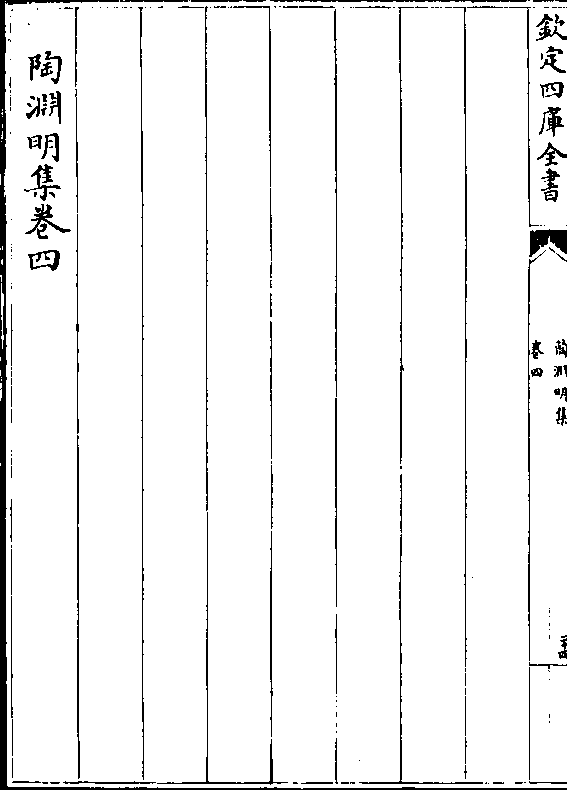 欽定四庫全書
陶淵明集
卷四
陶淵明集卷四